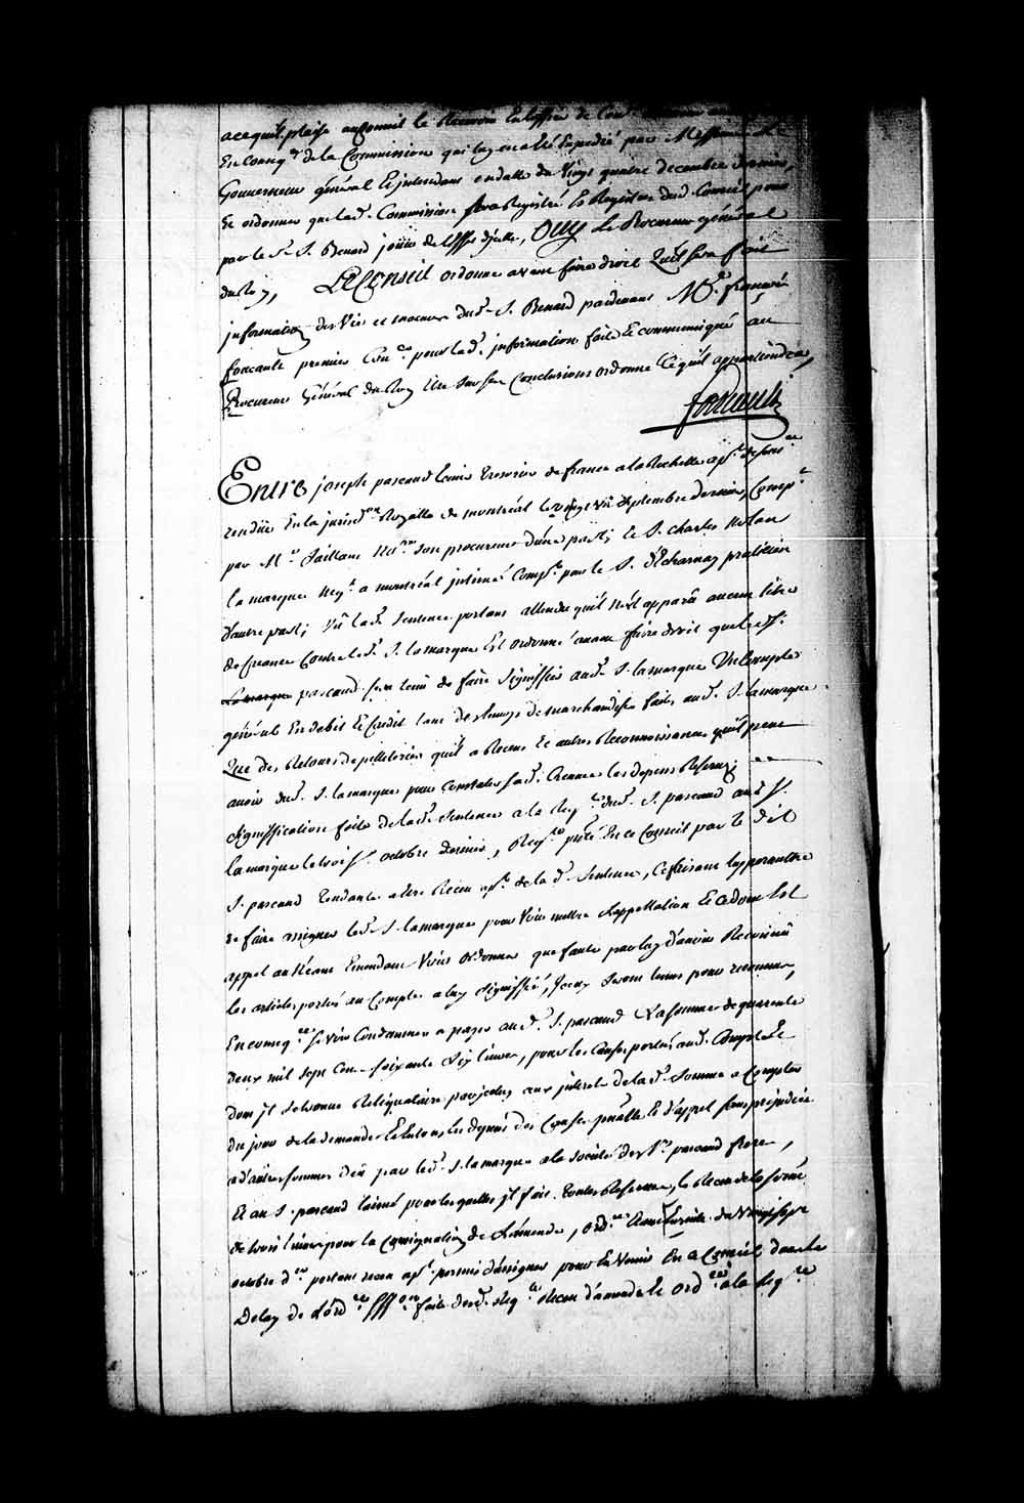 acequil plaise au Conseil le Recevoir En loffice de Con
En conseq.ce de la Commission qui luy en a été Expedié par Messieurs Le
Gouverneur général Et jntendant en datte du Vingt quatre decembre dernier,
Et ordonner que lad.e Commission sera Registrée Es Registres dud. Conseil pour
par le d. S. Benard jouir de l'Effet d'jcelle, Ouy Le Procureur général
du Roy, LeConseil ordonne avant faire droit Quil sera fait
jnformation des Vie et moeurs dud. S. Benard pardevant M.e françois
foucault premier Con.er pour lad.e jnformation faite Et communiqué au
Procureur Général du Roy Etre sur ses Conclusions ordonné Cequil appartiendra,
foucault
Entre joseph pascaud Ecuier Tresorier de france a la Rochelle ap.t de sent.ce
rendüe En la jurisd.on Royalle de montréal le vingt sept.e Septembre dernier, Comp.t
par M.e Jaillant No.re son procureur d'une part; Et le S. charles Nolan
lamarque Neg.t a montréal jntimé Comp.t par le S. D'Echarnay praticien
d'autre part; Vû lad.e Sentence portant attendu quil N'est apparû aucun titre
de Creance Contre led. S. lamarque Est ordonné avant faire droit que led. S.
Lamarque pascaud sera tenu de faire signifier aud. S. lamarque Un Compte
général En debit Et Credit tant des Envoys de marchandises faits aud. S. lamarque
Que des Retours de pelleteries quil a Receus Et autres Reconnoissances quil peut
avoir dud. S. lamarque pour Constater sad. Creance les depens Reservez
signiffication faite de lad.e Sentence a la Req.te dud. S. pascaud aud. S.
lamarque le trois octobre dernier, Req.te pnt.ée En ce Conseil par le dit
S. pascaud tendante a être Receu ap.t de la d.e Sentence, Ce faisant luy permettre
de faire assigner led. S. lamarque pour Voir mettre l'appellation Et ce dont Est
appel au Néant Emendant Voir ordonner que faute par luy d'avoir Reconnû
les articles portés au Compte a luy signiffié, jceux seront tenus pour reconnus,
En conseq.ce se voir Condamner a payer aud. S. pascaud La somme de quarante
deux mil sept Cent soixante dix livres, pour les Causes portées aud. Compte Et
dont jl se trouve Reliquataire par jceluy, aux jnterests de la d.e Somme a Compter
du jour de la demande Et En tous les depens des Causes pnalle Et d'appel sans préjudice
a d'autres sommes deû par led. S. lamarque a la société des S.rs pascaud frere,
Et au S. pascaud l'aîné pour lesquelles jl fait toutes Reserves, le Receu de la somme
de trois livres pour la Consignation de l'amende, ord.ce Ensuite du Vingt sept
octobre d.er portant receu ap.t permis d'assigner pour En Venir En ce Conseil dans le
Delay de L'ord.ce signiff.on faite desd. Req.te Receu d'amende Et ord.ce a la Req.te